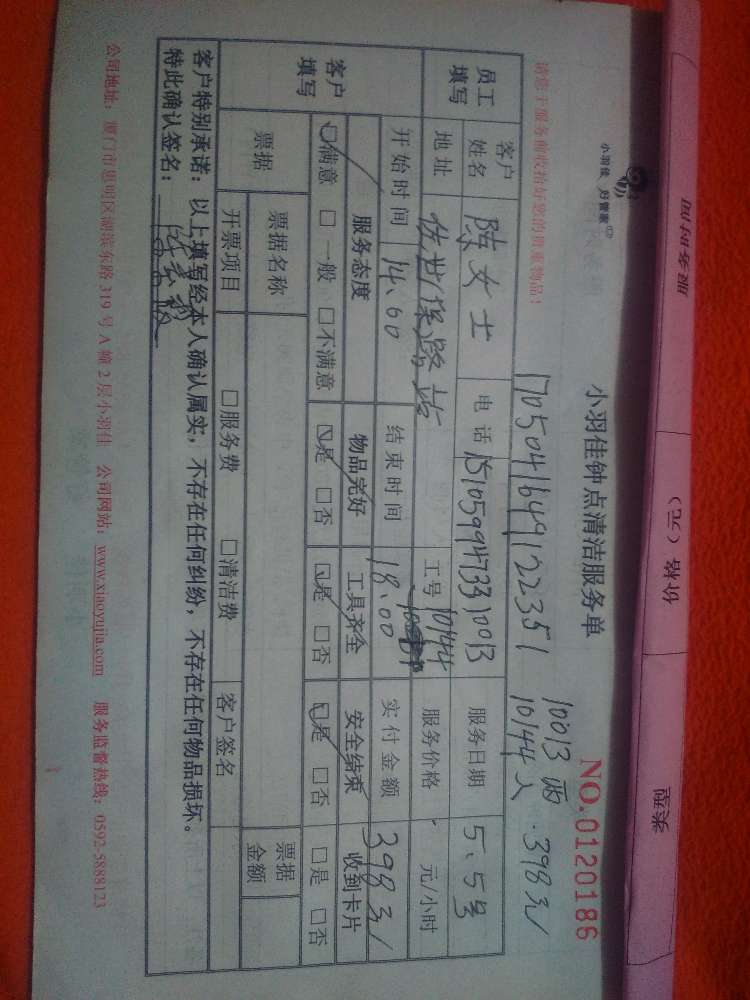 服务时间
价格（元）
类型
小羽佳 好管家
小羽佳钟点清洁服务单
NO.0120186
请您于服务前收拾好您的贵重物品！
1705041649122351
10013 两 398元
10144 人
员工填写
客户姓名 陈女士 电话 15105994733 10013 服务日期 5、5号
地址 工号 10144 服务价格 元/小时
客户填写
开始时间 14、00 结束时间 18、00 实付金额 398元
服务态度 物品完好 工具齐全 安全结束 收到卡片
☑满意 □一般 □不满意 ☑是 □否 ☑是 □否 ☑是 □否 □是 □否
票据 票据名称 票据金额
开票项目 □服务费 □清洁费 客户签名
客户特别承诺：以上填写经本人确认属实，不存在任何纠纷，不存在任何物品损坏。
特此确认签名：
公司地址：厦门市思明区湖滨东路 319 号 A 幢 2 层小羽佳 公司网站：www.xiaoyujia.com 服务监督热线：0592-5888123